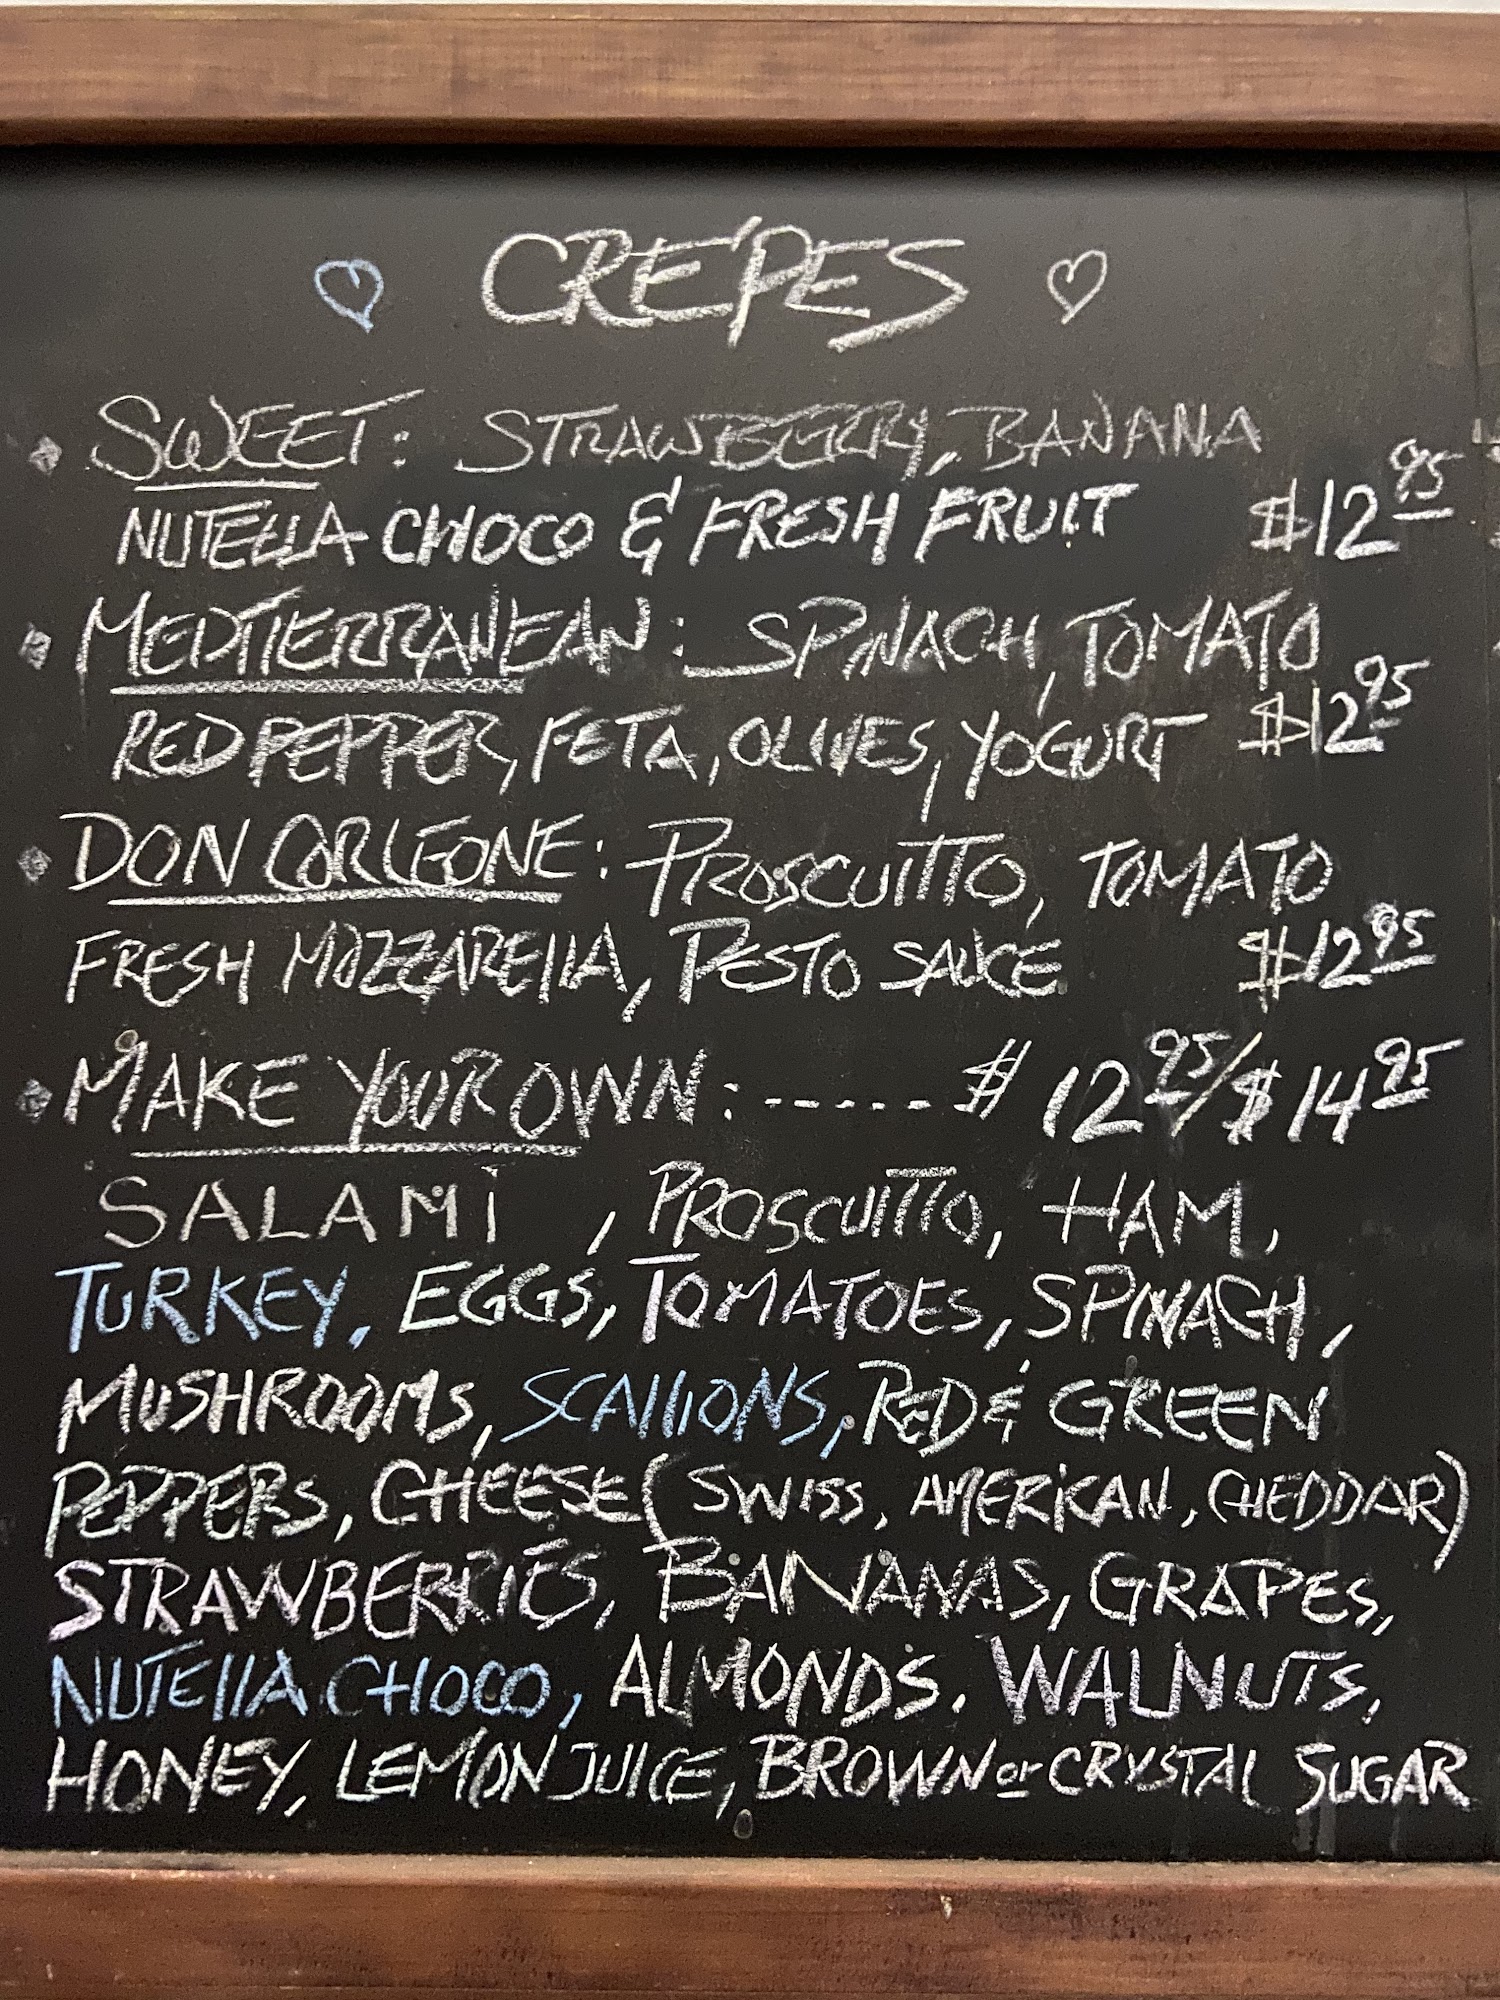 CRÉPES
SWEET: STRAWBERRY, BANANA
NUTELLA CHOCO & FRESH FRUIT $12.95
MEDTIERRANEAN: SPINACH, TOMATO
RED PEPPER, FETA, OLIVES, YOGURT $12.95
DON CORLEONE: PROSCUITTO, TOMATO
FRESH MOZZARELLA, PESTO SAUCE $12.95
MAKE YOUR OWN: ----- $ 12.95/$ 14.95
SALAMI , PROSCUITTO, HAM,
TURKEY, EGGS, TOMATOES, SPINACH,
MUSHROOMS, SCALLIONS, RED & GREEN
PEPPERS, CHEESE (SWISS, AMERICAN, CHEDDAR)
STRAWBERRIES, BANANAS, GRAPES,
NUTELLA CHOCO, ALMONDS. WALNUTS,
HONEY, LEMON JUICE, BROWN or CRYSTAL SUGAR